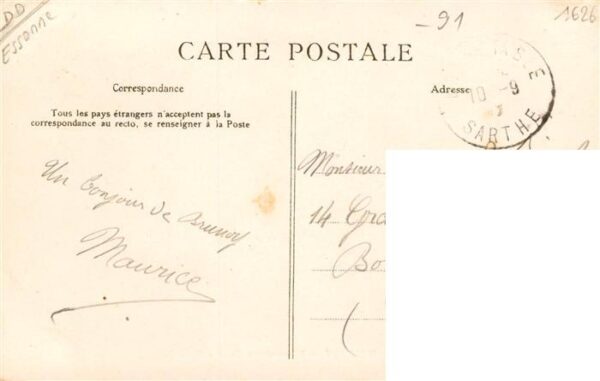 DD
Essonne
-91
1626
CARTE POSTALE
Correspondance
Adresse
Tous les pays étrangers n'acceptent pas la
correspondance au recto, se renseigner à la Poste
10 -9
SARTHE
Un bonjour de Brunoy
Maurice
Monsieur
14
Bo